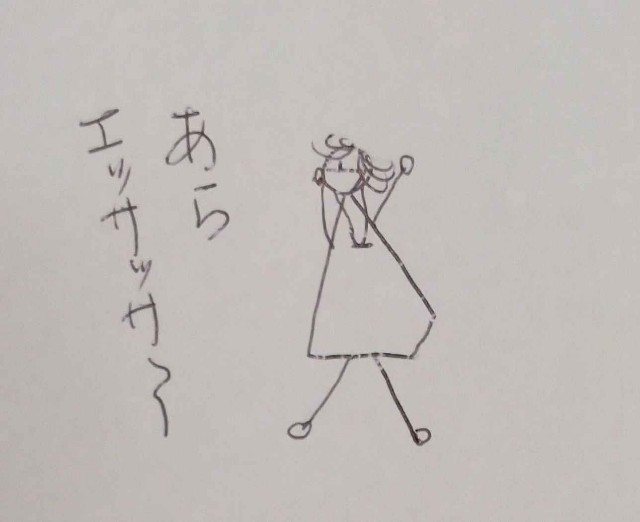 あら
エッサッサ〜